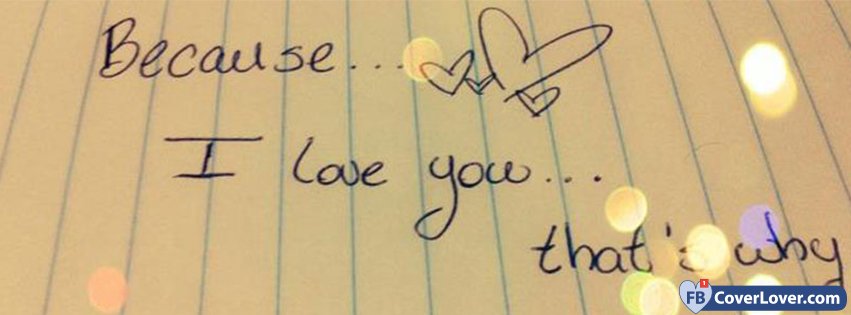 Because...
I love you...
that's why
FB CoverLover.com
1